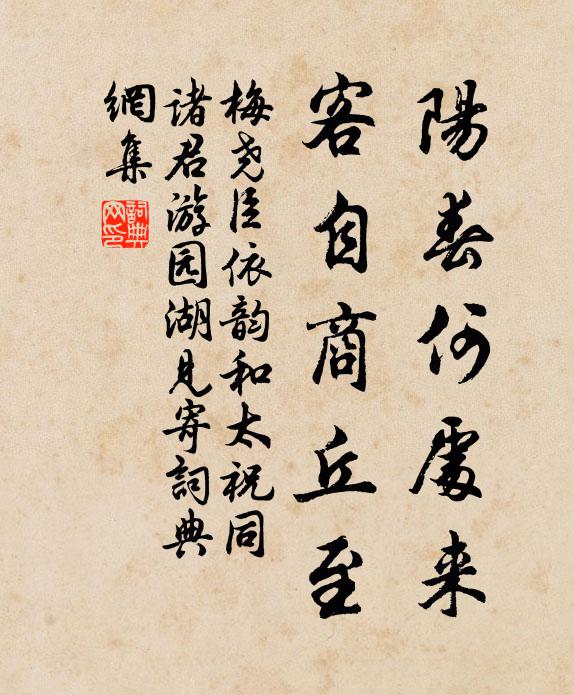 陽春何處来
客自商丘至
梅尧臣依韵和太祝同
諸君游园湖見寄詞典
網集
詞典网印